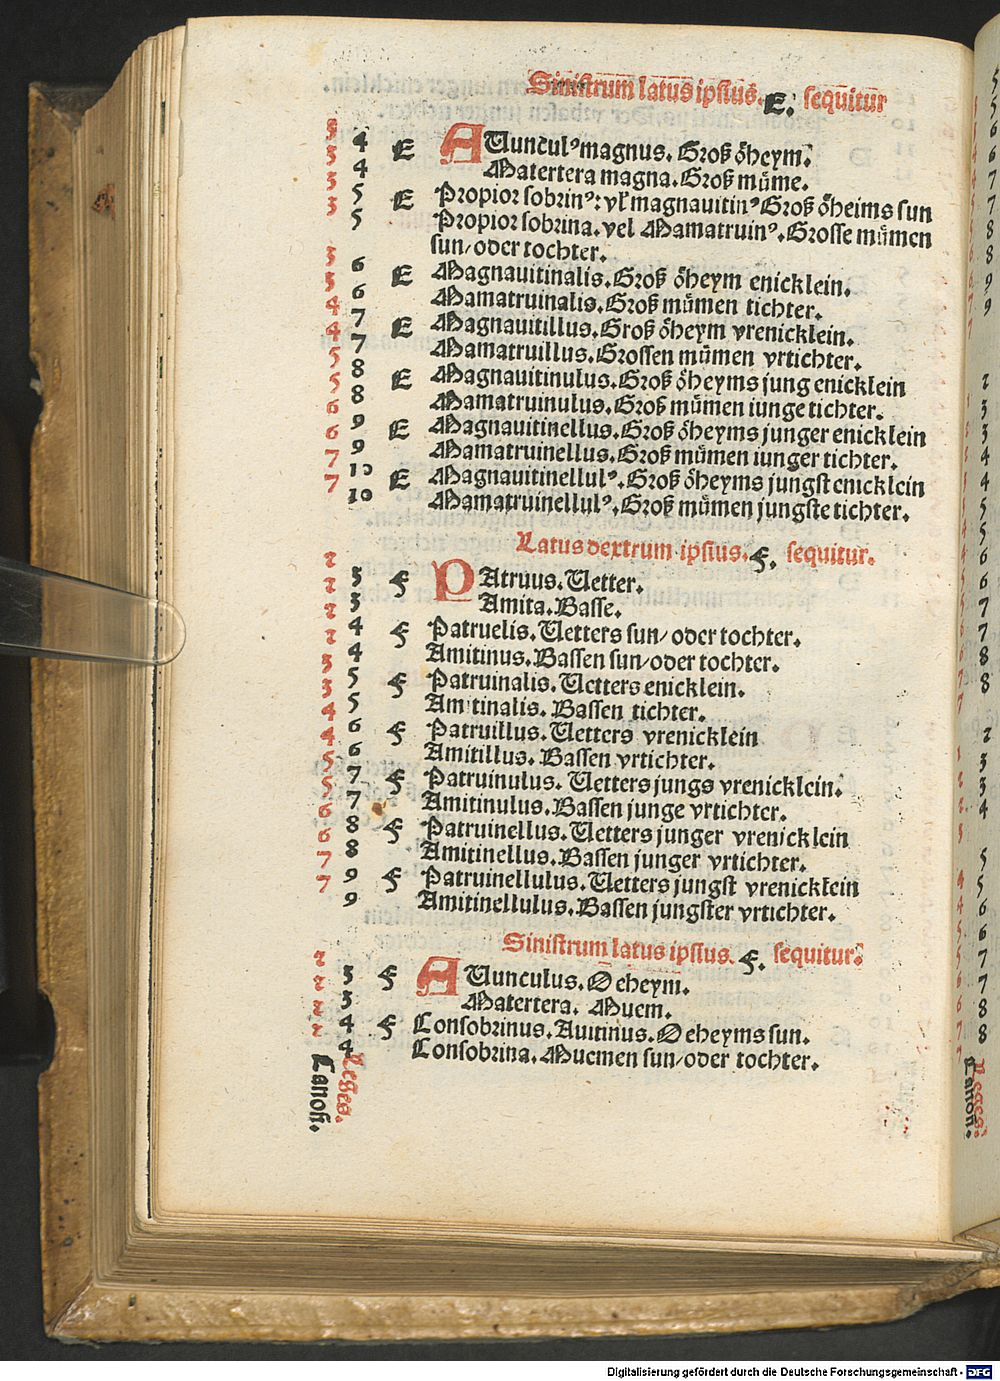 Sinistrum latus ipsius. E. sequitur
3 4 E AUuncul⁹ magnus. Groß öheym.
3 4 Matertera magna. Groß müme.
3 5 E Propior sobrin⁹: vł magnauitin⁹ Groß öheims sun
3 5 Propior sobrina. vel Mamatruin⁹. Grosse mümen
sun/ oder tochter.
3 6 E Magnauitinalis. Groß öheym enicklein.
3 6 Mamatruinalis. Groß mümen tichter.
4 7 E Magnauitillus. Groß öheym vrenicklein.
4 7 Mamatruillus. Grossen mümen vrtichter.
5 8 E Magnauitinulus. Groß öheyms jung enicklein
5 8 Mamatruinulus. Groß mümen iunge tichter.
6 9 E Magnauitinellus. Groß öheyms junger enicklein
6 9 Mamatruinellus. Groß mümen iunger tichter.
7 10 E Magnauitinellul⁹. Groß öheyms jungst enicklein
7 10 Mamatruinellul⁹. Groß mümen jungste tichter.
Latus dextrum ipsius. F. sequitur.
2 3 F PAtruus. Uetter.
2 3 Amita. Basse.
2 4 F Patruelis. Uetters sun/ oder tochter.
2 4 Amitinus. Bassen sun/ oder tochter.
3 5 F Patruinalis. Uetters enicklein.
3 5 Amitinalis. Bassen tichter.
4 6 F Patruillus. Uetters vrenicklein
4 6 Amitillus. Bassen vrtichter.
5 7 F Patruinulus. Uetters jungs vrenicklein.
5 7 Amitinulus. Bassen junge vrtichter.
6 8 F Patruinellus. Uetters junger vrenicklein
6 8 Amitinellus. Bassen junger vrtichter.
7 9 F Patruinellulus. Uetters jungst vrenicklein
7 9 Amitinellulus. Bassen jungster vrtichter.
Sinistrum latus ipsius. F. sequitur.
2 3 F AUunculus. Oeheym.
2 3 Matertera. Muem.
2 4 F Consobrinus. Auitinus. Oeheyms sun.
2 4 Consobrina. Muemen sun/ oder tochter.
Leges.
Canon.
Leges.
Canon.
Digitalisierung gefördert durch die Deutsche Forschungsgemeinschaft - DFG